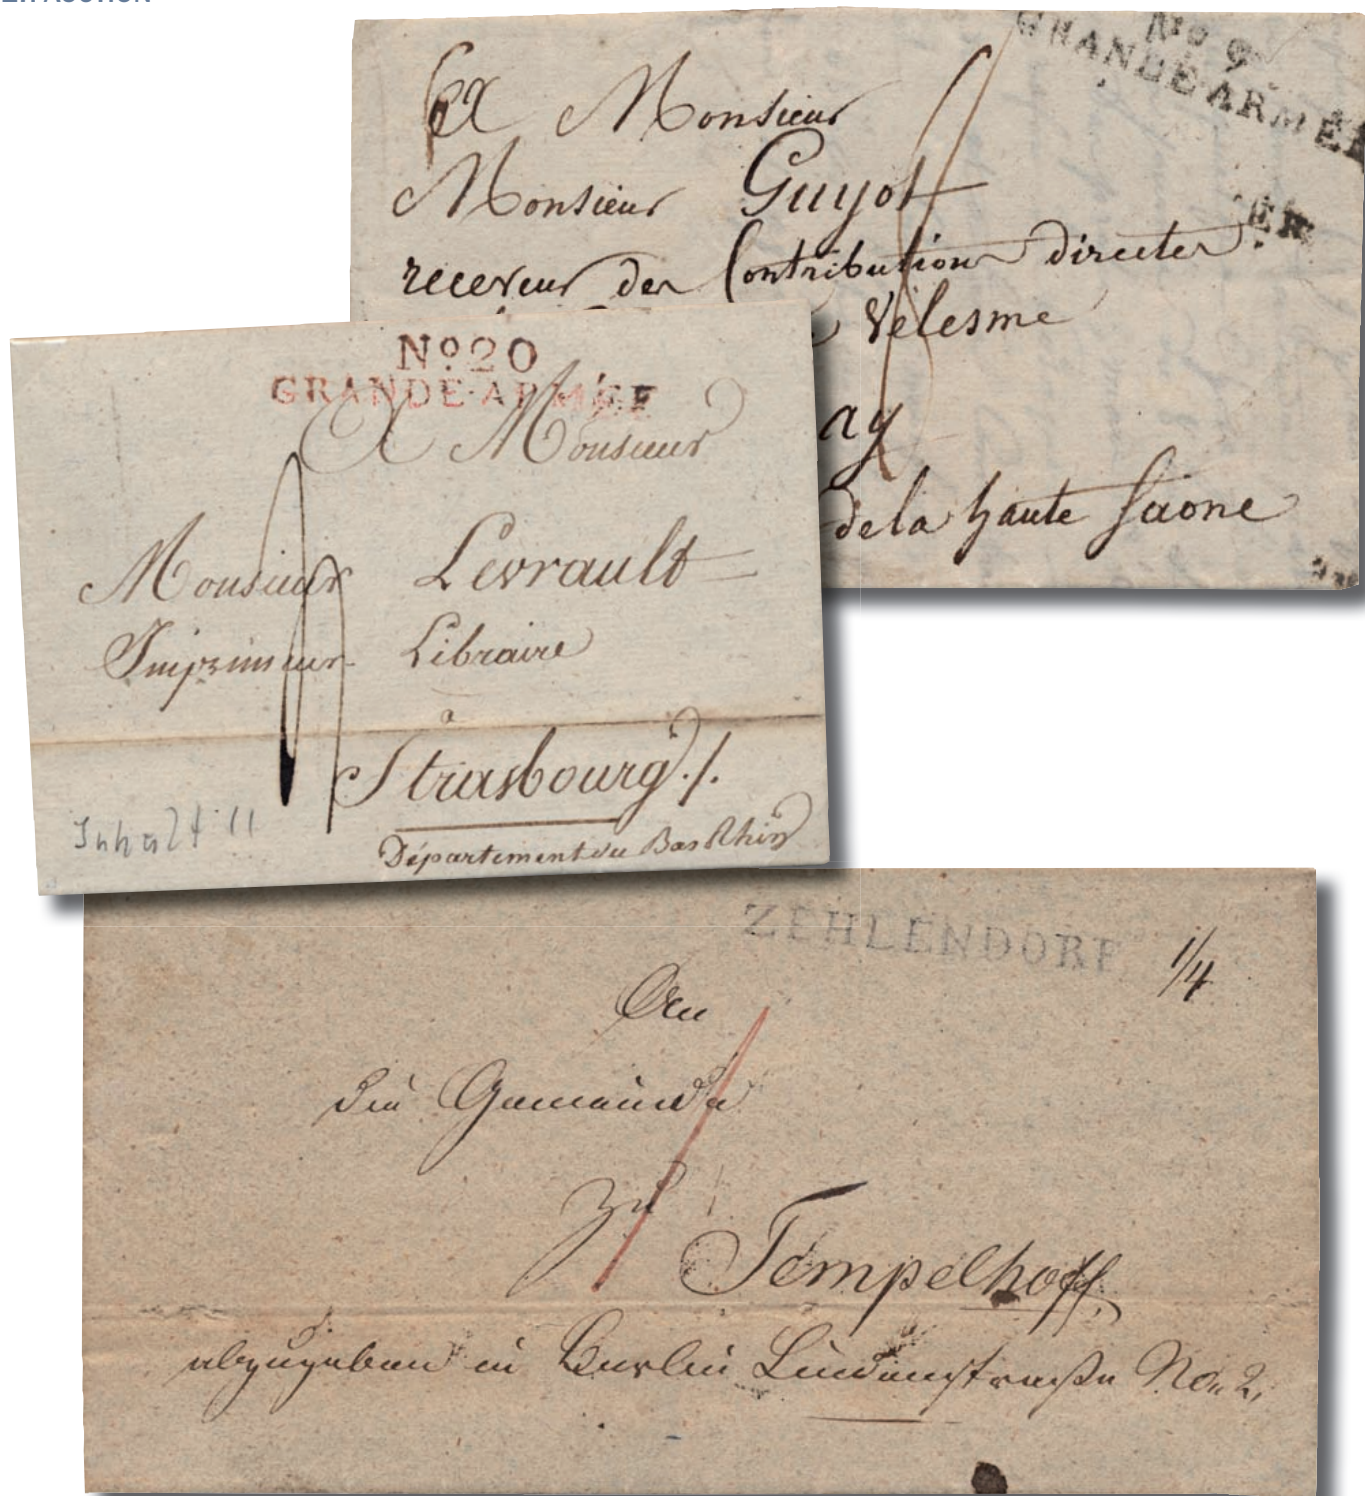 No 9
GRANDE·ARMÉE
A Monsieur
Monsieur Guyot
receveur des Contributions directes
Velesme
ay
de la haute Saone
No. 20
GRANDE·ARMÉE
A Monsieur
Monsieur Levrault
Imprimeur Libraire
a
Strasbourg ./.
Département du Bas Rhin
Inhalt !!
ZEHLENDORF
1/4
An
die Gemeinde
zu
Tempelhoff
abzugeben in Berlin Lindenstraße No. 2,